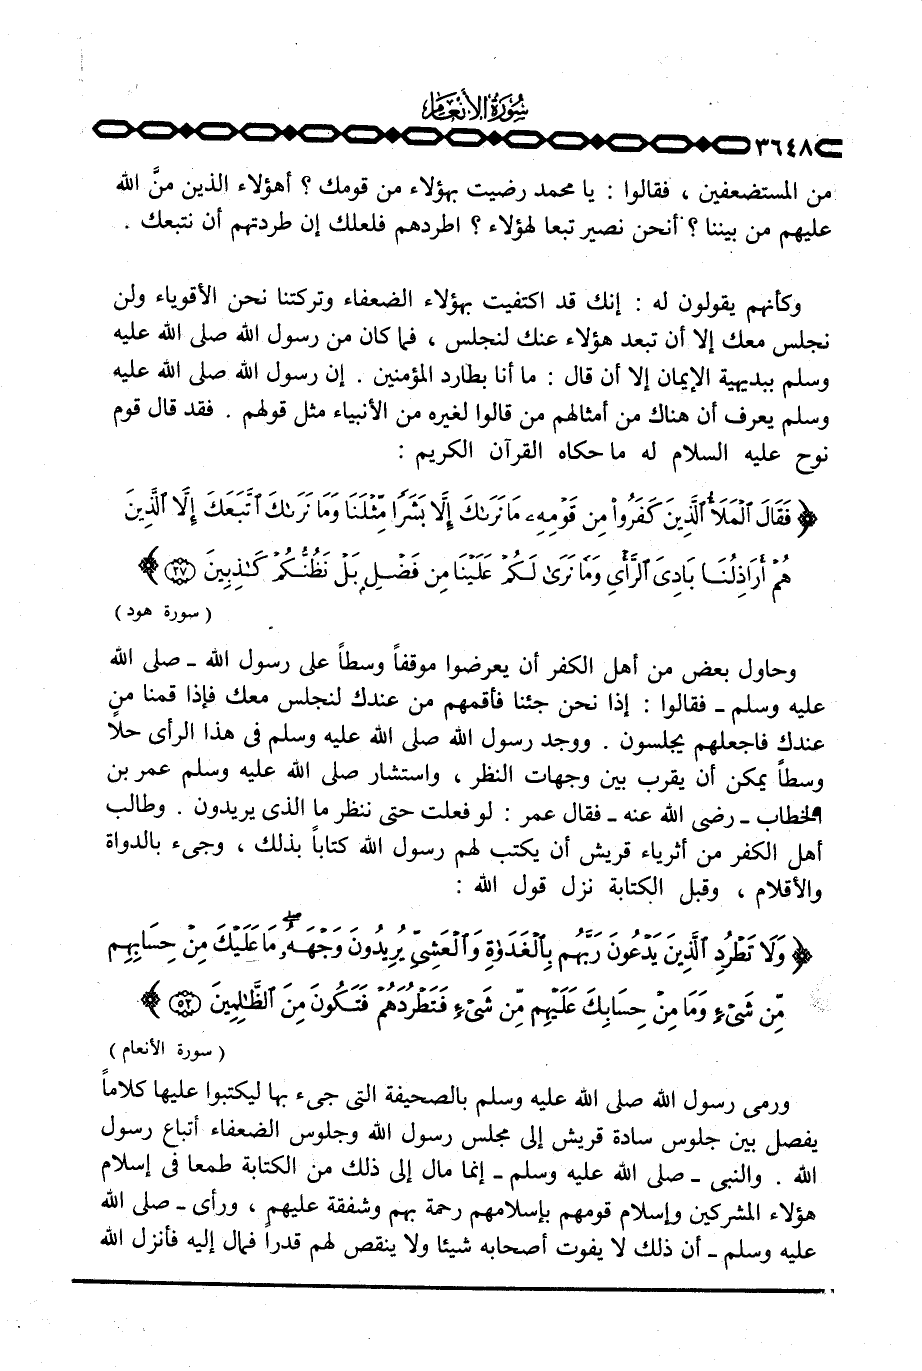 سورة الأنعام
٣٦٤٨
من المستضعفين ، فقالوا : يا محمد رضيت بهؤلاء من قومك ؟ أهؤلاء الذين منَّ الله
عليهم من بيننا ؟ أنحن نصير تبعا لهؤلاء ؟ اطردهم فلعلك إن طردتهم أن نتبعك .
وكأنهم يقولون له : إنك قد اكتفيت بهؤلاء الضعفاء وتركتنا نحن الأقوياء ولن
نجلس معك إلا أن تبعد هؤلاء عنك لنجلس ، فما كان من رسول الله صلى الله عليه
وسلم ببديهية الإيمان إلا أن قال : ما أنا بطارد المؤمنين . إن رسول الله صلى الله عليه
وسلم يعرف أن هناك من أمثالهم من قالوا لغيره من الأنبياء مثل قولهم . فقد قال قوم
نوح عليه السلام له ما حكاه القرآن الكريم :
﴿ فَقَالَ ٱلْمَلَأُ ٱلَّذِينَ كَفَرُواْ مِن قَوْمِهِۦ مَا نَرَىٰكَ إِلَّا بَشَرًا مِّثْلَنَا وَمَا نَرَىٰكَ ٱتَّبَعَكَ إِلَّا ٱلَّذِينَ
هُمْ أَرَاذِلُنَا بَادِىَ ٱلرَّأْىِ وَمَا نَرَىٰ لَكُمْ عَلَيْنَا مِن فَضْلٍۭ بَلْ نَظُنُّكُمْ كَـٰذِبِينَ ٢٧ ﴾
( سورة هود )
وحاول بعض من أهل الكفر أن يعرضوا موقفاً وسطاً على رسول الله ـ صلى الله
عليه وسلم ـ فقالوا : إذا نحن جئنا فأقمهم من عندك لنجلس معك فإذا قمنا من
عندك فاجعلهم يجلسون . ووجد رسول الله صلى الله عليه وسلم فى هذا الرأى حلاً
وسطاً يمكن أن يقرب بين وجهات النظر ، واستشار صلى الله عليه وسلم عمر بن
الخطاب ـ رضى الله عنه ـ فقال عمر : لو فعلت حتى ننظر ما الذى يريدون . وطالب
أهل الكفر من أثرياء قريش أن يكتب لهم رسول الله كتاباً بذلك ، وجىء بالدواة
والأقلام ، وقبل الكتابة نزل قول الله :
﴿ وَلَا تَطْرُدِ ٱلَّذِينَ يَدْعُونَ رَبَّهُم بِٱلْغَدَوٰةِ وَٱلْعَشِىِّ يُرِيدُونَ وَجْهَهُۥ ۖ مَا عَلَيْكَ مِنْ حِسَابِهِم
مِّن شَىْءٍ وَمَا مِنْ حِسَابِكَ عَلَيْهِم مِّن شَىْءٍ فَتَطْرُدَهُمْ فَتَكُونَ مِنَ ٱلظَّـٰلِمِينَ ٥٢ ﴾
( سورة الأنعام )
ورمى رسول الله صلى الله عليه وسلم بالصحيفة التى جىء بها ليكتبوا عليها كلاماً
يفصل بين جلوس سادة قريش إلى مجلس رسول الله وجلوس الضعفاء أتباع رسول
الله . والنبى ـ صلى الله عليه وسلم ـ إنما مال إلى ذلك من الكتابة طمعا فى إسلام
هؤلاء المشركين وإسلام قومهم بإسلامهم رحمة بهم وشفقة عليهم ، ورأى ـ صلى الله
عليه وسلم ـ أن ذلك لا يفوت أصحابه شيئا ولا ينقص لهم قدراً فمال إليه فأنزل الله